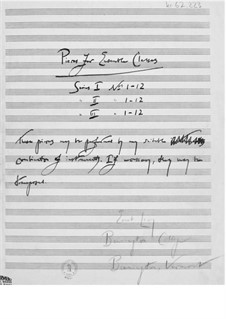 Pieces for Ensemble Classes
Series I No. 1-12
" II " 1-12
" III " 1-12
These pieces may be performed by any suitable
combination of instruments. If necessary, they may be
transposed.
Bennington College
Bennington, Vermont